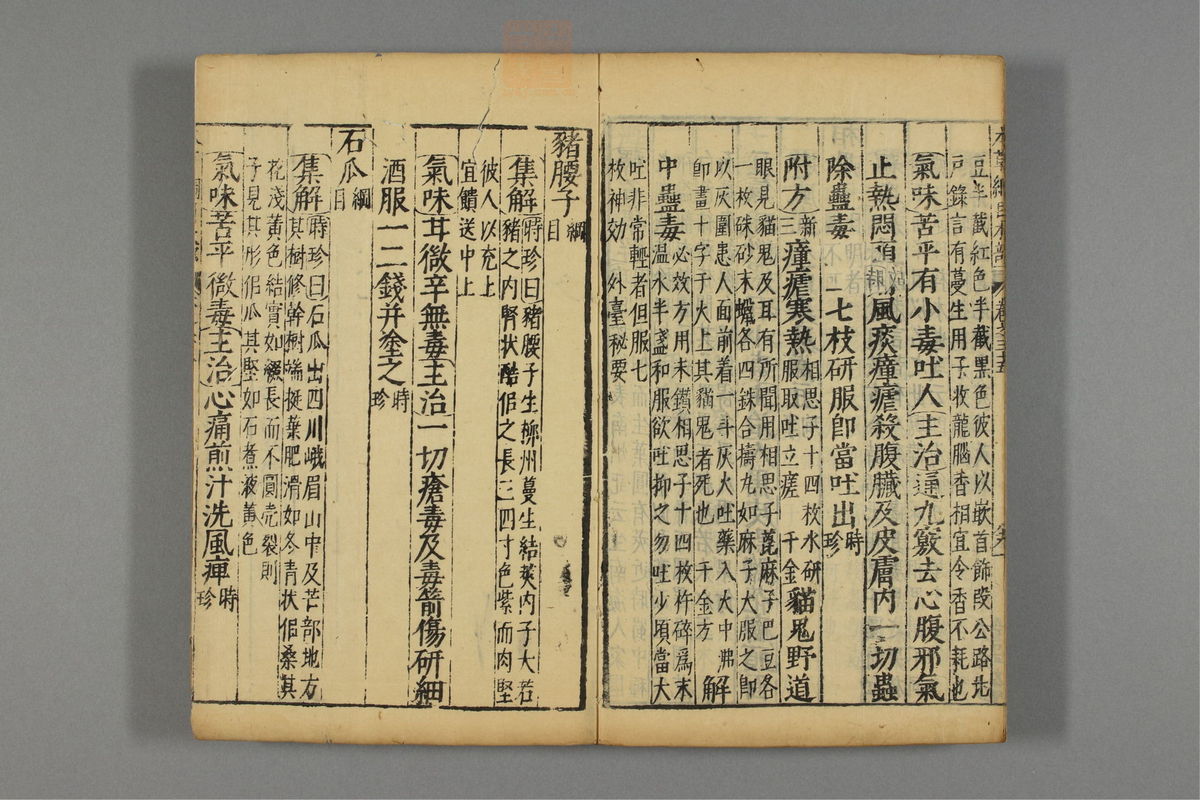 豆半截紅色半截黑色彼人以嵌首飾段公路北
戸錄言有蔓生用子收龍腦香相宜令香不耗也
氣味苦平有小毒吐人主治通九竅去心腹邪氣
止熱悶頭痛風痰瘴瘧殺腹臟及皮膚內一切蟲
除蠱毒二七枝研服卽當吐出時珍
附方新三瘴瘧寒熱相思子十四枚水研服取吐立瘥千金貓鬼野道
眼見貓鬼及耳有所聞用相思子蓖麻子巴豆各
一枚硃砂末蠟各四銖合擣丸如麻子大服之卽
以灰圍患人面前着一斗灰火吐藥入火中沸
卽畫十字于火上其貓鬼者死也千金方解
中蠱毒必效方用未鑽相思子十四枚杵碎爲末
溫水半盞和服欲吐抑之勿吐少頃當大
吐非常輕者但服七
枚神効外臺秘要
豬腰子綱目
集解時珍曰豬腰子生柳州蔓生結莢內子大若
豬之內腎狀酷似之長三四寸色紫而肉堅
彼人以充上
宜饋送中土
氣味甘微辛無毒主治一切瘡毒及毒箭傷研細
酒服一二錢并塗之時珍
石瓜綱目
集解時珍曰石瓜出四川峨眉山中及芒部地方
其樹修幹樹端挺葉肥滑如冬青狀似桑其
花淺黃色結實如綴長而不圓壳裂則
子見其形似瓜其堅如石煮液黃色
氣味苦平微毒主治心痛煎汁洗風痺時珍